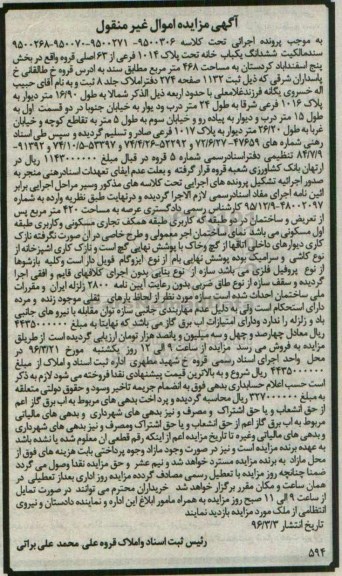 آگهی مزایده اموال غیر منقول
به موجب پرونده اجرائی تحت کلاسه ۹۵۰۰۳۰۶- ۹۵۰۰۲۷۱ -۹۵۰۰۰۷۰ -۹۵۰۰۲۶۸
سندمالکیت ششدانگ یکباب خانه تحت پلاک ۱۰۱۴ فرعی از ۶۳ اصلی قروه واقع در بخش
پنج اسفندآباد کردستان به مساحت ۴۶۸ متر مربع مطابق سند به آدرس قروه خ طالقانی خ
پاسداران شرقی که ذیل ثبت ۱۱۳۲ صفحه ۲۷۴ دفتر املاک جلد ۸ ثبت و به نام آقای حبیب
اله خسروی یگانه فرزندغلامعلی با حدود اربعه ذیل الذکر شمالا به طول ۱۶/۹۰ متر دیوار به
پلاک ۱۰۱۶ فرعی شرقا به طول ۲۴ متر درب ودیوار به خیابان جنوبا در دو قسمت اول به
طول ۱۵ متر درب و دیوار به پیاده رو و خیابان سوم به طول ۵ متر به تقاطع کوچه و خیابان
غربا به طول ۲۶/۲۰ متر دیوار به پلاک ۱۰۱۷ فرعی صادر و تسلیم گردیده و سپس طی اسناد
رهنی شماره های ۴۷۶۵۹-۷۲/۶/۲۷ و ۵۲۲۹۲-۷۴/۴/۲۶ و ۵۳۳۹۷-۷۴/۱۰/۵ و ۹۱۳۹۲-
۸۴/۷/۹ تنظیمی دفتراسنادرسمی شماره ۵ قروه در قبال مبلغ ۱۱۴۳۰۰۰۰۰۰ ریال در
ارتهان بانک کشاورزی شعبه قروه قرار گرفته و بعلت عدم ایفای تعهدات اسنادرهنی منجر به
صدور اجرائیه تشکیل پرونده های اجرایی تحت کلاسه های مذکور وسیر مراحل اجرایی برابر
آئین نامه اجرای مفاد اسنادرسمی لازم الاجرا گردیده و درنهایت طبق نظریه وارده به شماره
۴۸۰۰۲۰۹۷-۹۵/۱۲/۹ کارشناس رسمی دادگستری عرصه به مساحت ۴۲۰ متر مربع پس
از تعریض و ساختمان در دو طبقه که کاربری طبقه همکف تجاری مسکونی وکاربری طبقه
اول مسکونی می باشد نمای ساختمان آجر معمولی و طرح خاصی در آن صورت نگرفته نازک
کاری دیوارهای داخلی اتاقها از گچ وخاک با پوشش نهایی گچ است و نازک کاری آشپزخانه از
نوع کاشی و سرامیک بوده پوشش نهایی بام از نوع ایزوگام فویل دار است وکلیه بازشوها
از نوع پروفیل فلزی می باشد سازه از نوع بنایی بدون اجرای کلافهای قایم و افقی اجرا
گردیده و سقف سازه از نوع طاق ضربی بدون رعایت آیین نامه ۲۸۰۰ زلزله ایران و مقررات
ملی ساختمان احداث شده است سازه مورد نظر از لحاظ بارهای ثقلی موجود زنده و مرده
دارای استحکام است ولی به دلیل عدم مهاربندی جانبی سازه توان مقابله با نیرو های جانبی
باد و زلزله را ندارد ودارای امتیازات آب برق گاز می باشد که نهایتا به مبلغ ۴۴۳۵۰۰۰۰۰۰
ریال معادل چهارصد و چهل و سه میلیون و پانصد هزار تومان ارزیابی گردیده است از طریق
مزایده به فروش می رسد مزایده از ساعت ۹ الی ۱۲ روز یکشنبه مورخ ۹۶/۳/۲۱ در
محل واحد اجرای اسناد رسمی قروه خ شهید مطهری اداره ثبت اسناد و املاک از مبلغ
۴۴۳۵۰۰۰۰۰۰ ریال شروع و به بالاترین قیمت پیشنهادی نقدا فروخته می شود لازم به ذکر
است حسب اعلام حسابداری بدهی فوق به انضمام جریمه تاخیر وسود و حقوق دولتی متعلقه
به مبلغ ۳۲۷۰۰۰۰۰۰۰ ریال محاسبه گردیده و پرداخت بدهی های مربوط به آب برق گاز اعم
از حق انشعاب و یا حق اشتراک و مصرف و نیز بدهی های شهرداری و بدهی های مالیاتی
مربوط به آب برق گاز اعم از حق انشعاب و یا حق اشتراک ومصرف و نیز بدهی های شهرداری
و بدهی های مالیاتی وغیره تا تاریخ مزایده اعم از اینکه رقم قطعی آن معلوم شده یا نشده باشد
به عهده برنده مزایده است و نیز در صورت وجود مازاد وجوه پرداختی بابت هزینه های فوق از
محل مازاد به برنده مزایده مسترد خواهد شد و نیم عشر و حق مزایده نقدا وصول می گردد
ضمنا چنانچه روز مزایده با تعطیل رسمی مصادف گردد مزایده روز اداری بعداز تعطیلی در
همان ساعت و مکان مقرر برگزار خواهد شد خریداران محترم می توانند در صورت تمایل
از ساعت ۹ الی ۱۱ صبح روز مزایده به همراه مامور ابلاغ این اداره و نماینده دادستان و نیروی
انتظامی از ملک مورد مزایده بازدید نمایند
تاریخ انتشار ۹۶/۳/۳
رئیس ثبت اسناد واملاک قروه علی محمد علی براتی
۵۹۴